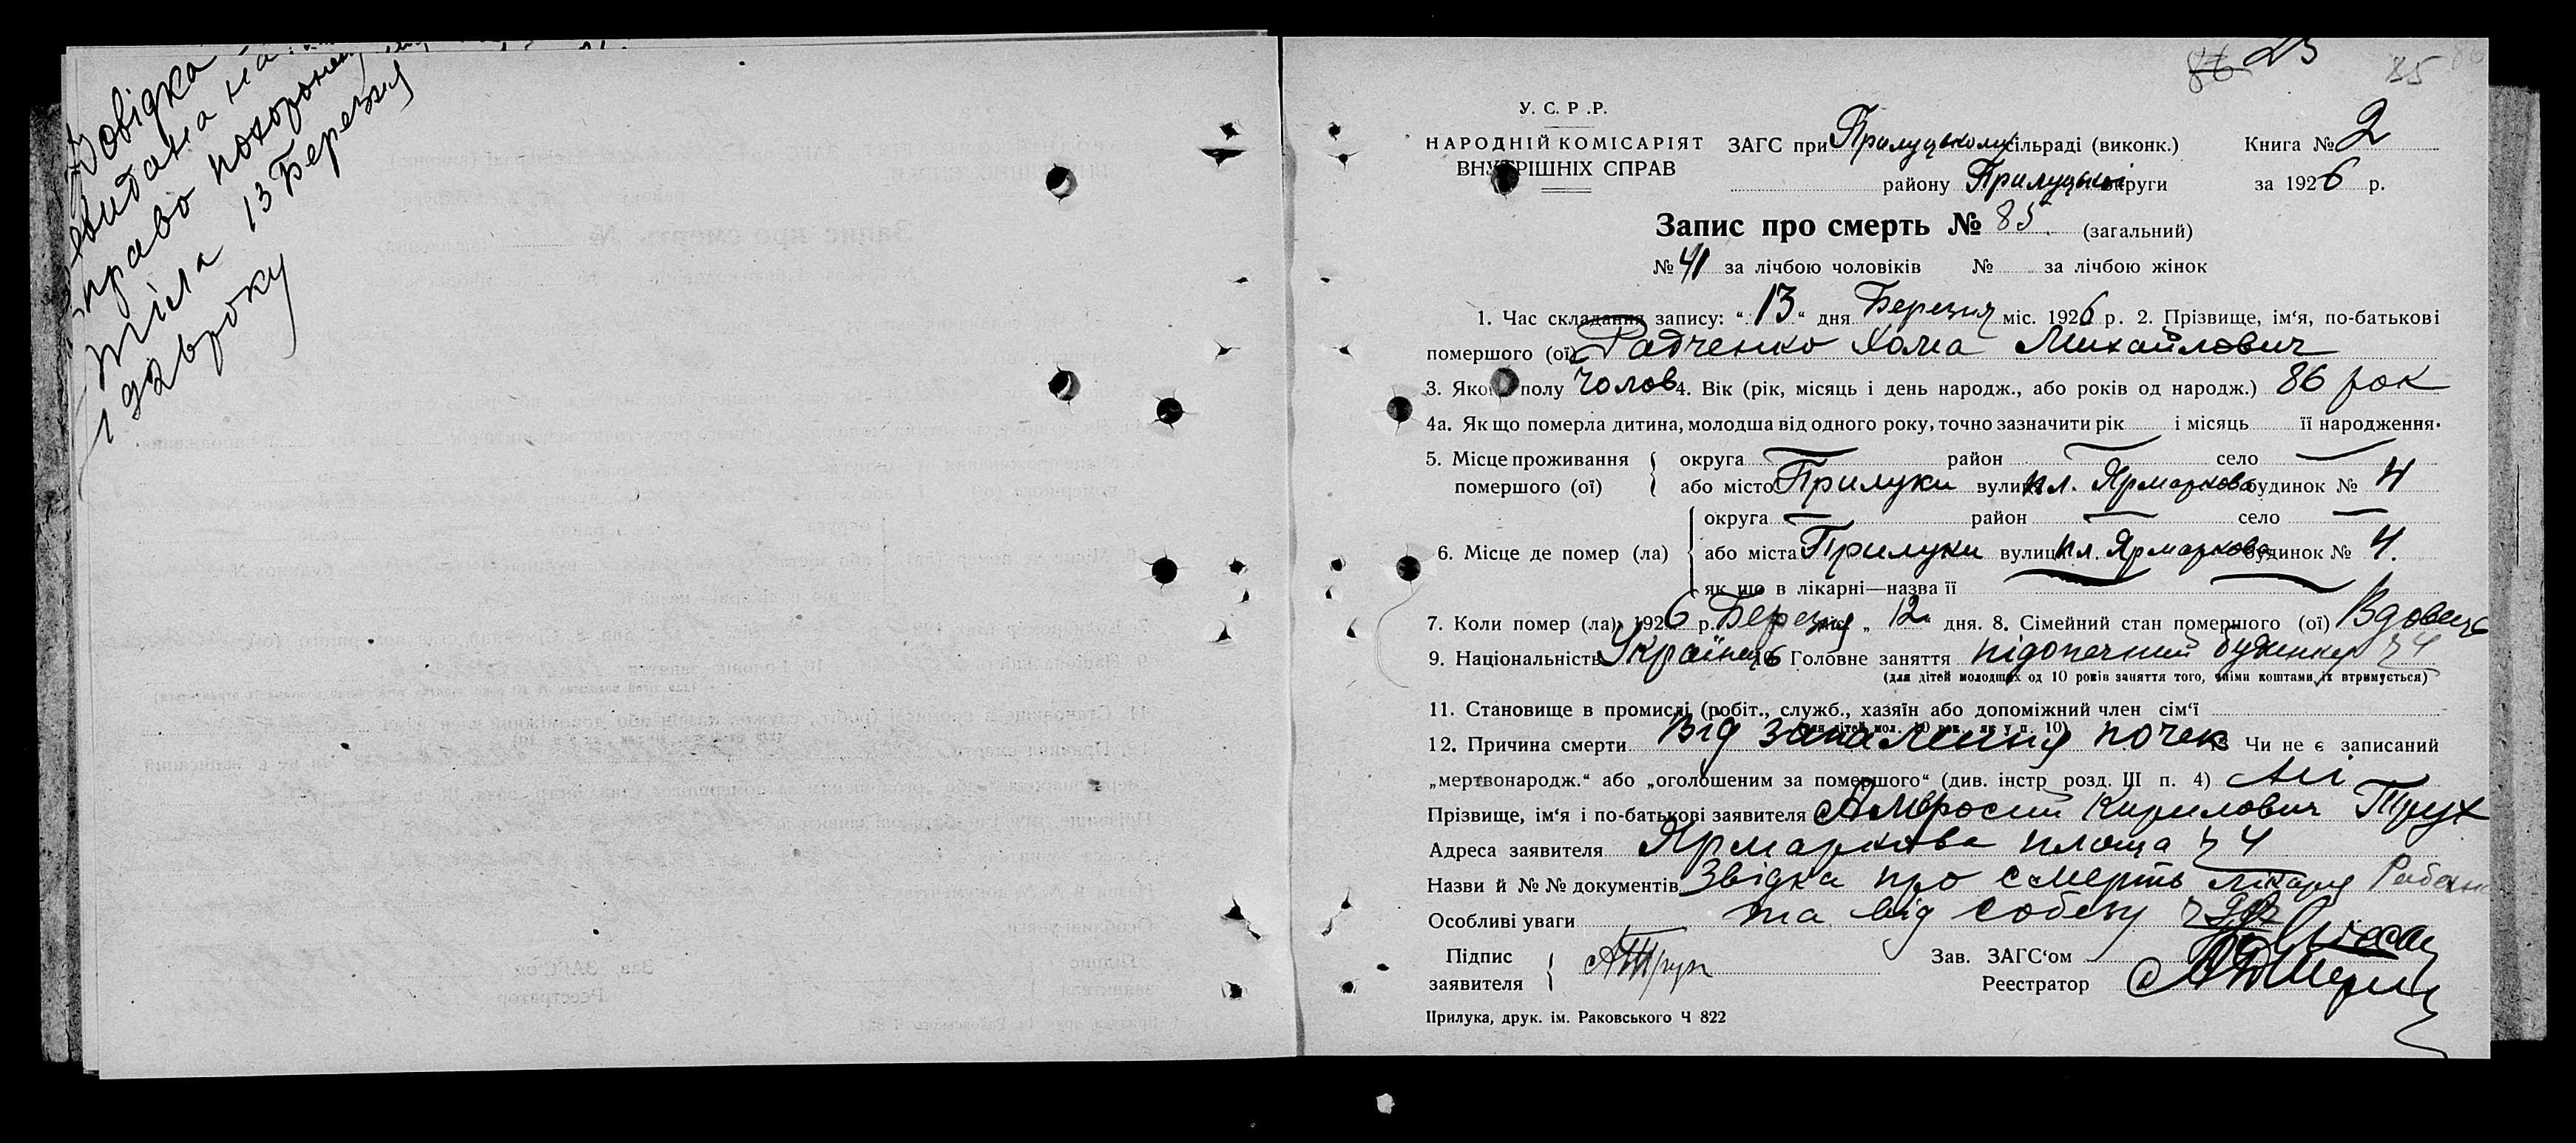 Довідка
видана на
право похорону
тіла 13 Березня
192 року
86 23 85 86
У. С. Р .Р.
НАРОДНІЙ КОМІСАРІЯТ
ВНУТРІШНІХ СПРАВ
ЗАГС при Прилуцькому сільраді (виконк.) Книга № 2
району Прилуцької округи за 1926 р.
Запис про смерть № 85. (загальний)
№ 41 за лічбою чоловіків № за лічбою жінок
1. Час складання запису: “ 13 “ дня Березня міс. 1926 р. 2. Прізвище, ім‘я, по-батькові
помершого (ої) Радченко Хома Михайлович
3. Якого полу Чолов 4. Вік (рік, місяць і день народж., або років од народж.) 86 рок
4а. Як що померла дитина, молодша від одного року, точно зазначити рік і місяць її народження.
5. Місце проживання округа район село
помершого (ої) або місто Прилуки вулиця пл. Ярмаркова будинок № 4
округа район село
6. Місце де помер (ла) або міста Прилуки вулиця пл. Ярмаркова будинок № 4.
як що в лікарні—назва її
7. Коли помер (ла) 1926 р. Березня „ 12 “ дня. 8. Сімейний стан помершого (ої) Вдовець
9. Національність Українець 10 Головне заняття підопечний будинку ч 4
(для дітей молодших од 10 років заняття того, чиїми коштами їх втримується)
11. Становище в промислі (робіт., служб., хазяїн або допоміжний член сім‘ї
(для дітей мол. 10 рок. як у п. 10)
12. Причина смерти Від запалення почек Чи не є записаний
„мертвонародж.“ або „оголошеним за помершого“ (див. інстр розд. III п. 4) Ні
Прізвище, ім‘я і по-батькові заявителя Амвросий Кирилович Трух
Адреса заявителя Ярмаркова площа ч 4
Назви й № № документів Звідка про смерть лікаря
Особливі уваги та від собезу ч
Підпис Зав. ЗАГС‘ом
заявителя АТрух Реестратор
Прилука, друк. ім. Раковського Ч 822